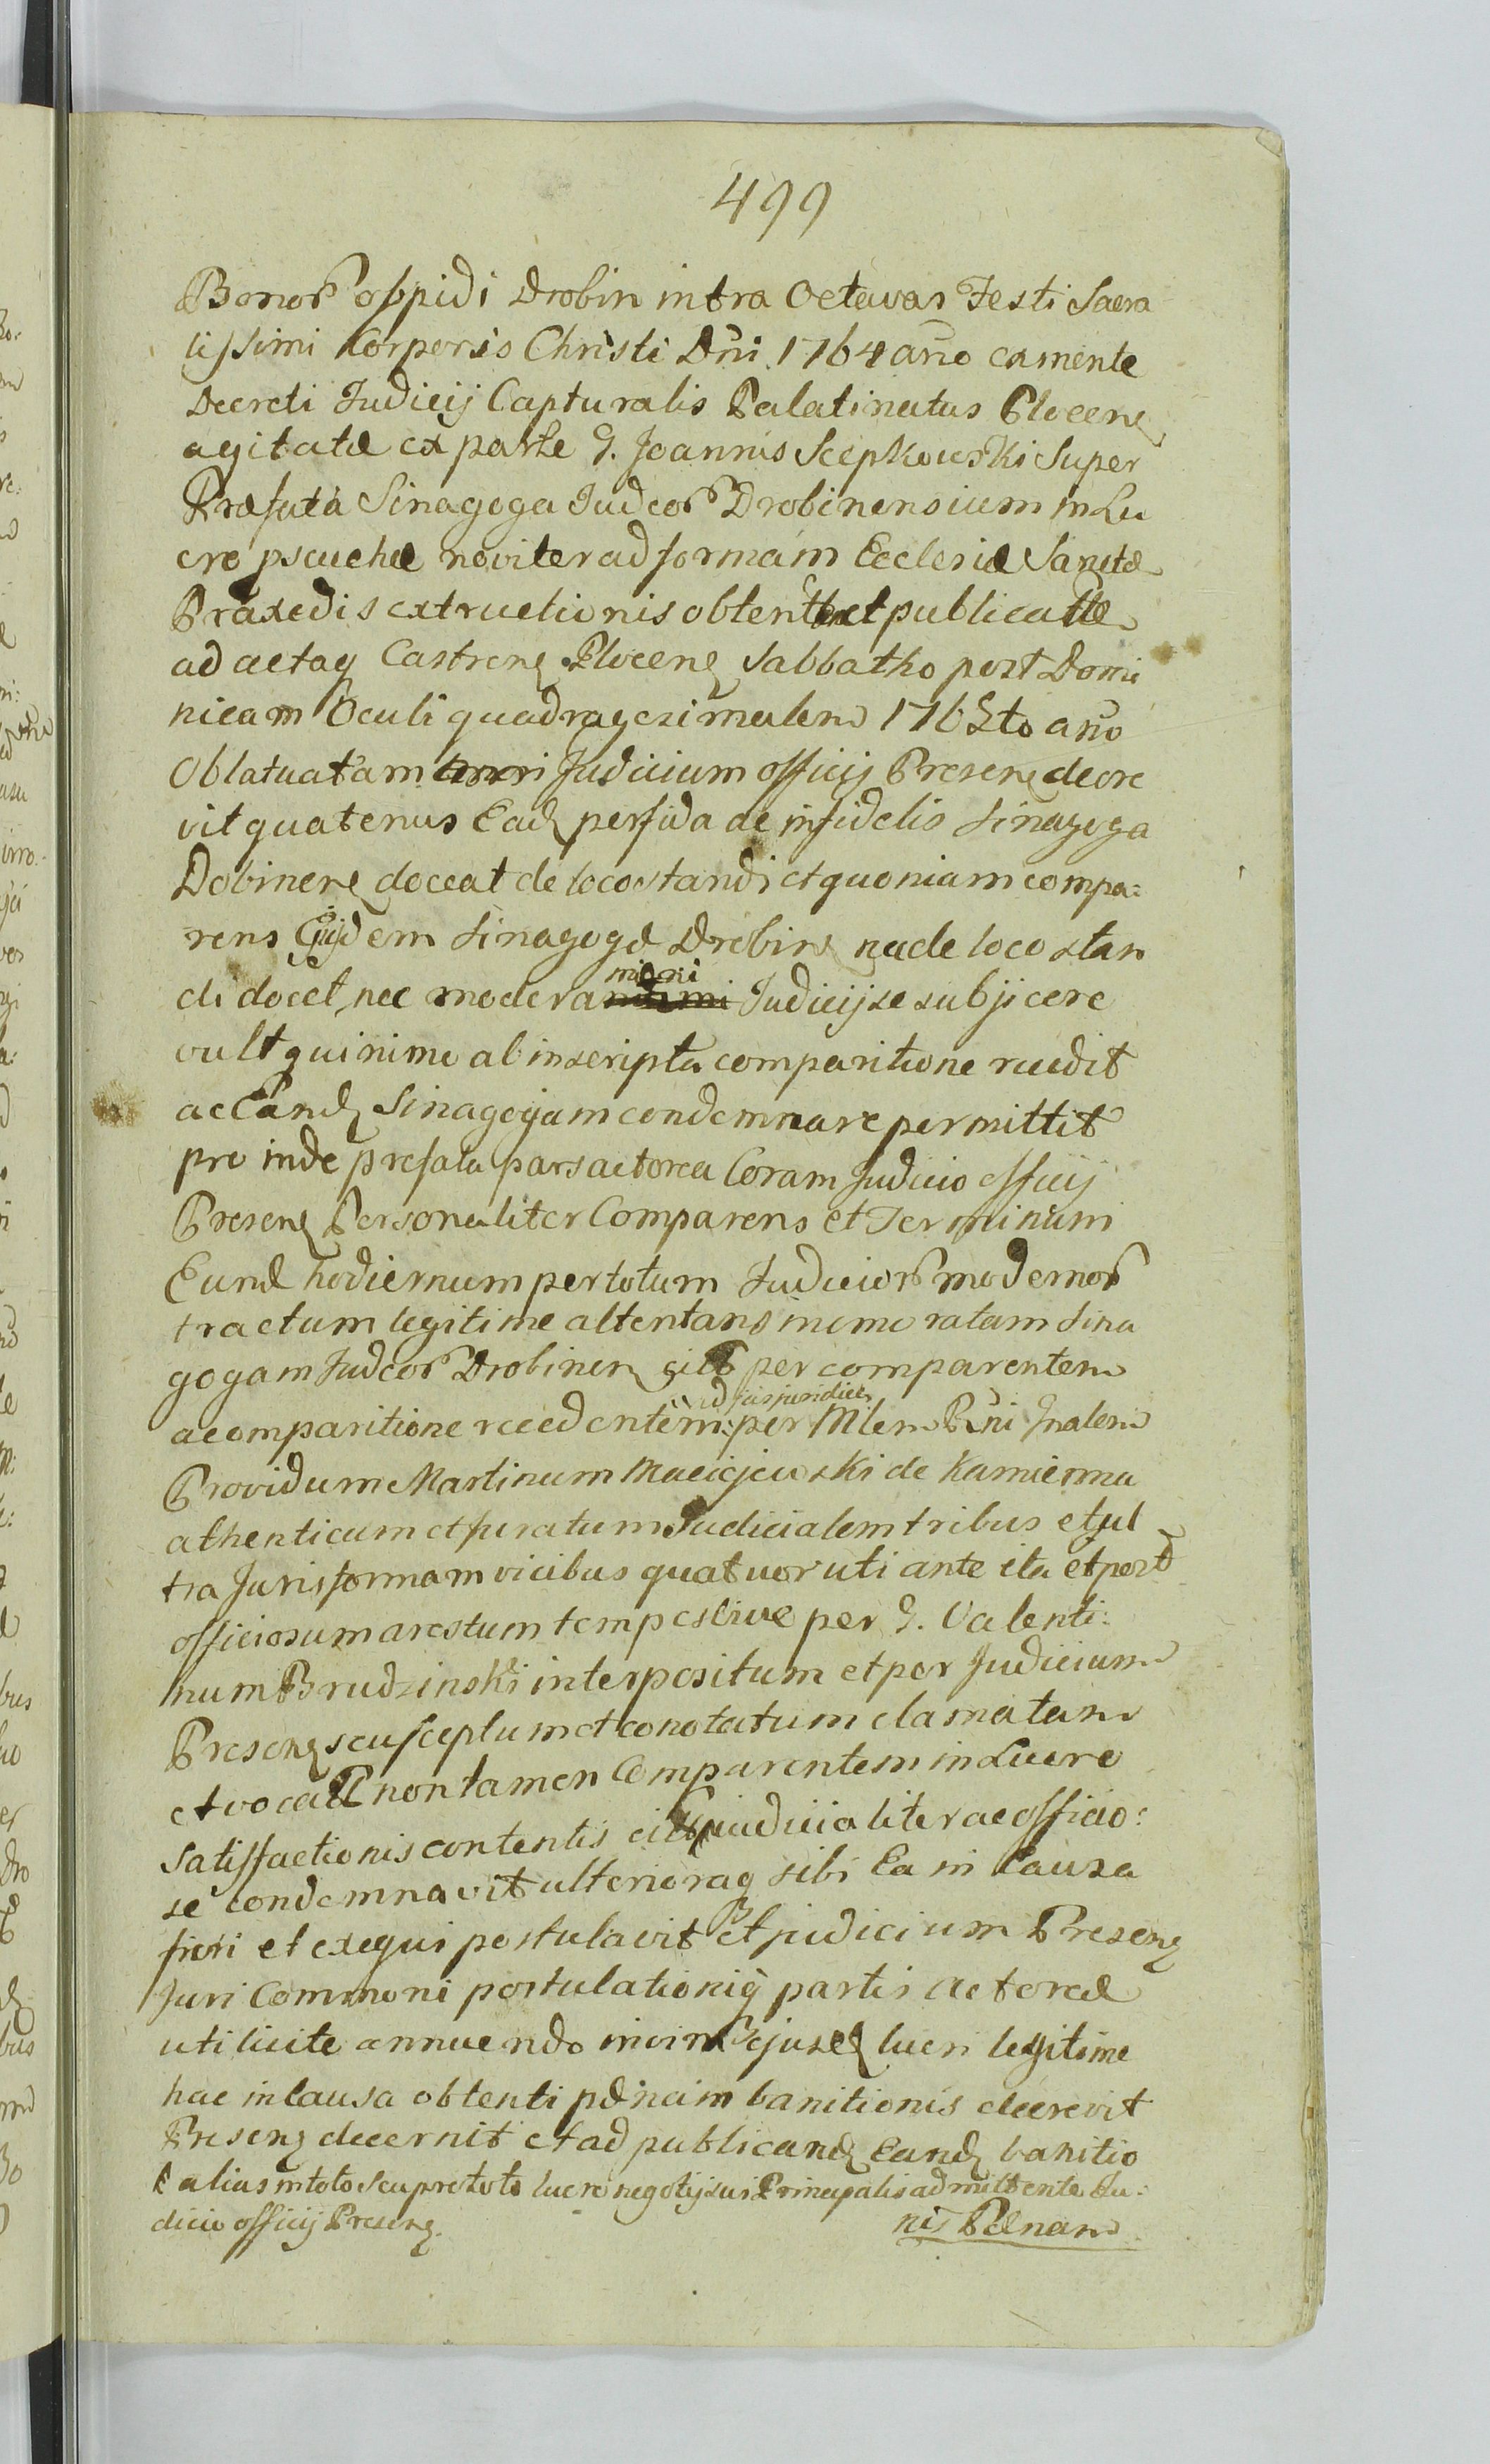 499
Bonor oppidi Drobin intra Octavas Festi Sacra
tissimi Corporis Christi Dñi 1764 año ex mente
Decreti Judicij Capturalis Palatinatus Plocen
agitatæ ex parte G. Joannis Scepkowski Super
Præfata Sinagoga Judeor Drobinensium in Lu
cro pseuchæ noviter ad formam Ecclesiæ Sanctæ
Praxedis extructionis obtent et publicatæ
ad actaq Castren Plocen Sabbatho post Domi
nicam Oculi quadragesimalem 1765to año
Oblatuatam Judicium officij Presen decre
vit quatenus Ead perfida ac infidelis Sinagoga
Dobinen doceat de loco standi et quoniam compa:
rens Ejusdem Sinagogæ Drobin na de loco stan
di docet, nec modera Judicij se subjicere
vult quinimo ab inscripta comparitione recedit
ac Eand Sinagogam condemnare permittit
pro inde prefata pars actorea Coram Judicio officij
Presen Personaliter Comparens et Terminum
Eund hodiernum per totum Judicior modernor
tractum legitime attentans memoratam Sina
gogam Judeor Drobinen citt per comparentem
a comparitione recedentem ad jus juridice per Mlem Rñi Gnalem
Providum Martinum Maciejewski de Kamienna
athenticum et juratum Judicialem tribus et ul
tra Juris formam vicibus quatuor uti ante ita et post
officiosum arestum tempestive per G. Valenti:
num Brudzinski interpositum et per Judicium
Presen susceptum et conotatum clamatam
et vocat non tamen Comparentem in Lucro
Satisfactionis contentis citt judicialiter ac officio:
se condemnavit ulterioraq sibi Ea in Causa
fieri et exequi postulavit et judicium Presen
Juri Communi postulationiq partis actoreæ
uti licite annuendo in vim ejusd lucri legitime
hac in causa obtenti pænam banitionis decrevit
Presen decernit et ad publicand Eand banitio
alias in toto seu pro toto lucro negotij sui Principalis admittente Ju:
dicio officij Presen.
nis Pænam